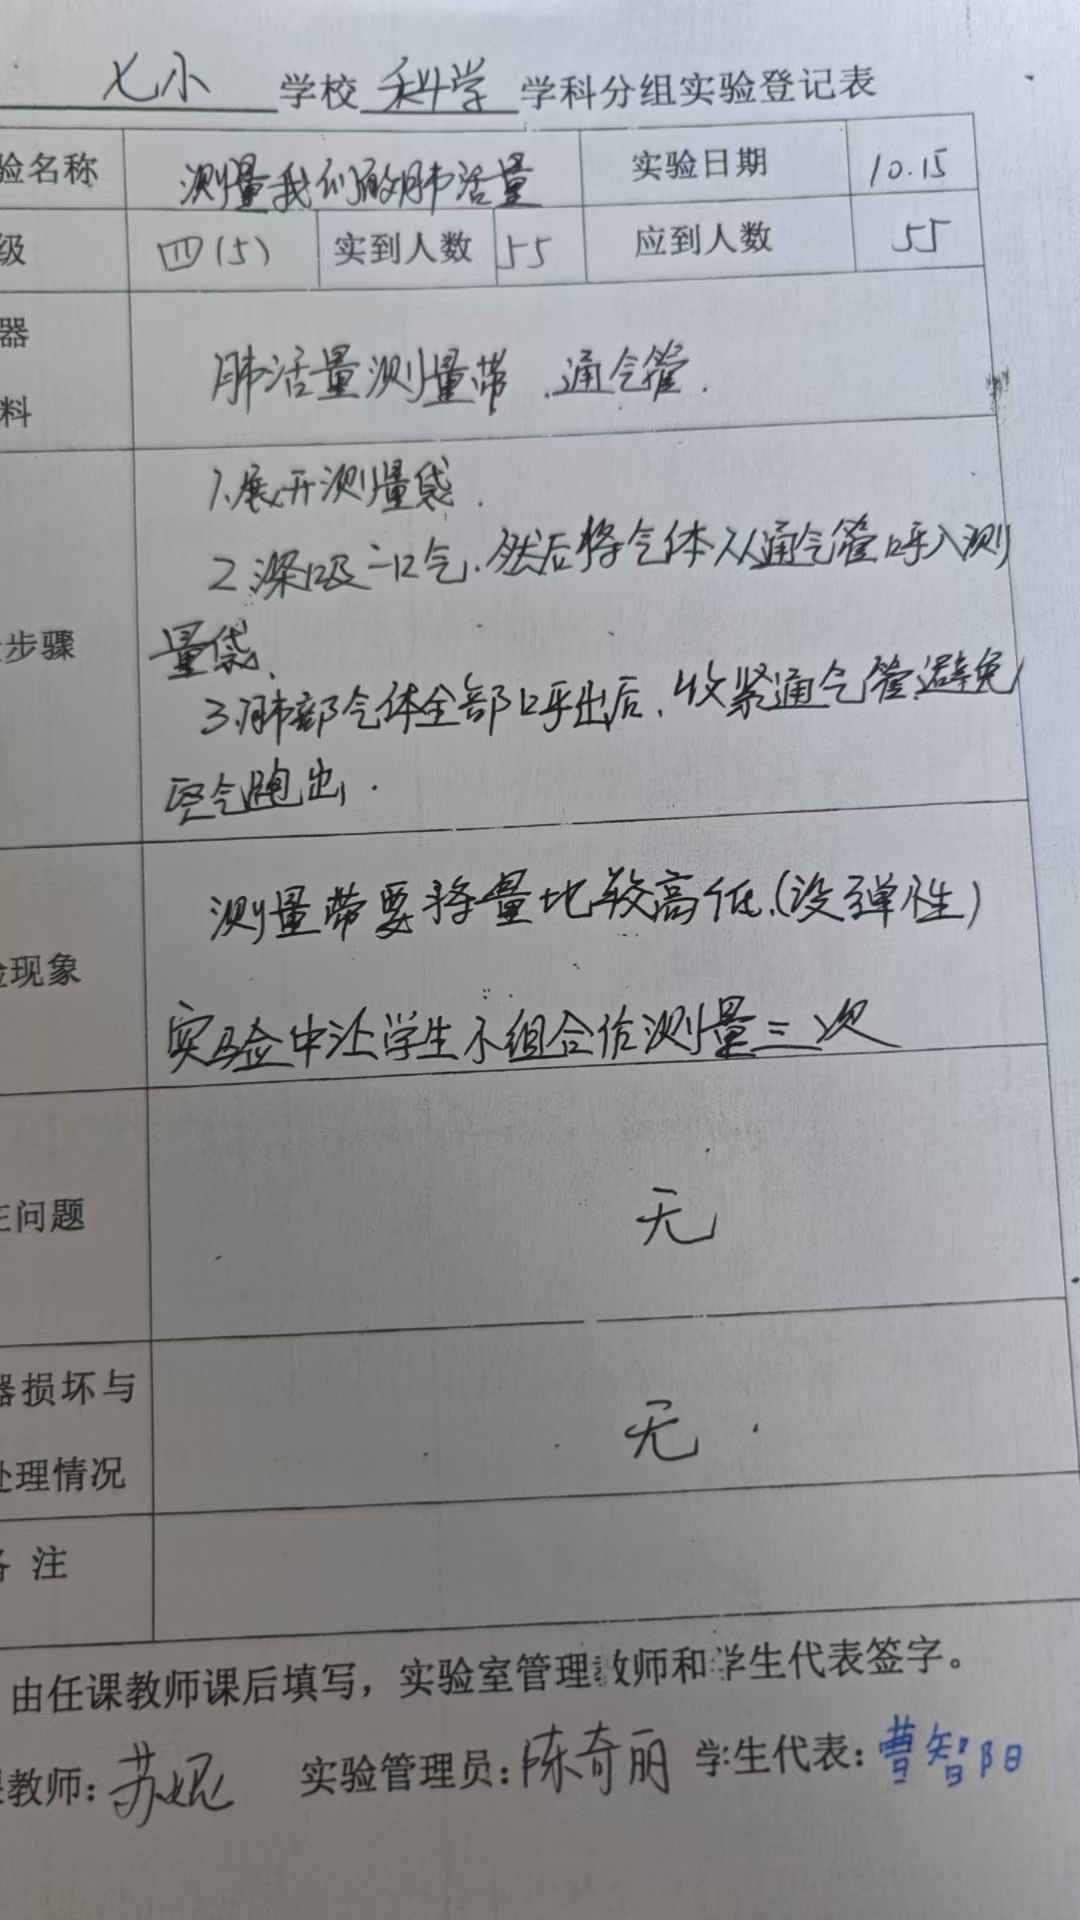 七小 学校 科学 学科分组实验登记表
验名称 测量我们的肺活量 实验日期 10.15
级 四(5) 实到人数 55 应到人数 55
器
料
肺活量测量带、通气管.
步骤
1.展开测量袋.
2.深吸一口气.然后将气体从通气管呼入测
量袋.
3.肺部气体全部呼出后.收紧通气管.避免
空气跑出.
现象
测量带要将量比较高低.(没弹性)
实验中让学生小组合作测量三次
问题 无
器损坏与
处理情况
无
注
由任课教师课后填写，实验室管理教师和学生代表签字。
教师: 苏妮 实验管理员: 陈奇丽 学生代表: 曹智阳